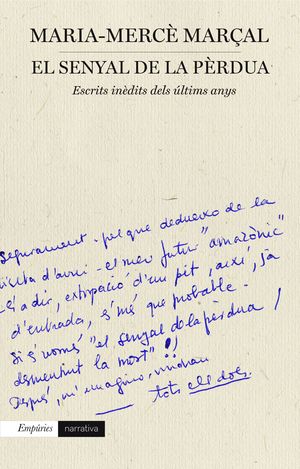 MARIA-MERCÈ MARÇAL
EL SENYAL DE LA PÈRDUA
Escrits inèdits dels últims anys
Segurament - pel que dedueixo de la
visita d'avui - el meu futur "amazònic"
és a dir, extirpació d'un pit, així, ja
d'entrada, és més que probable.
Si és només "el senyal de la pèrdua /
desmentint la mort"!!
Després, m'imagino, vindran
tots els dols.
Empúries
narrativa